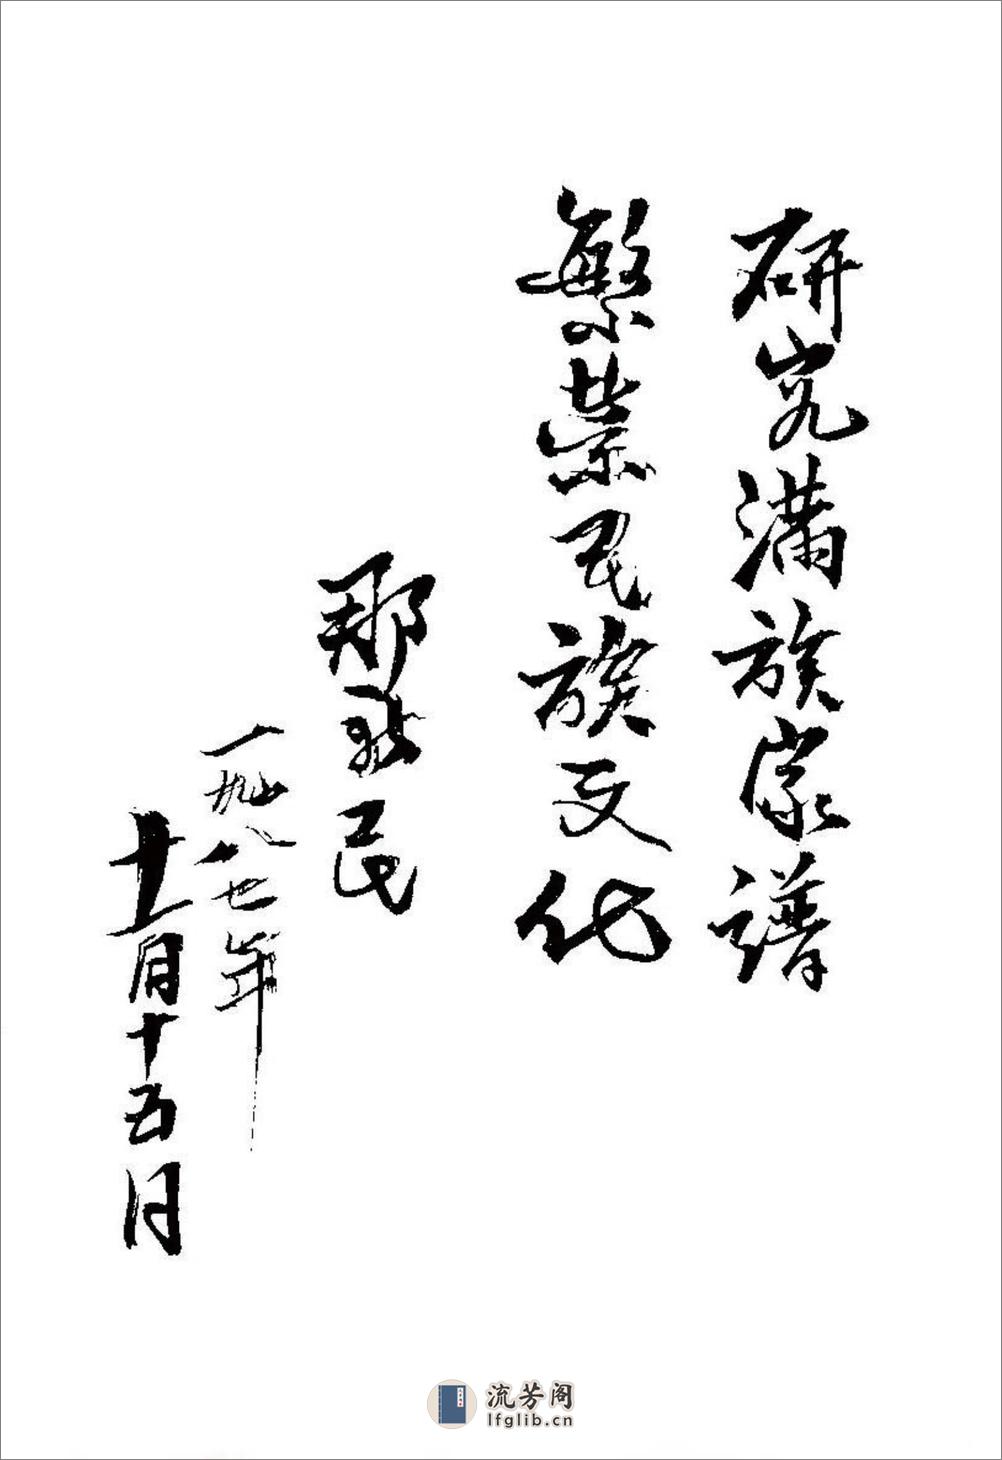 研究满族家谱
繁荣民族文化
那民
一九八七年
十一月十五日
流芳阁
lfglib.cn